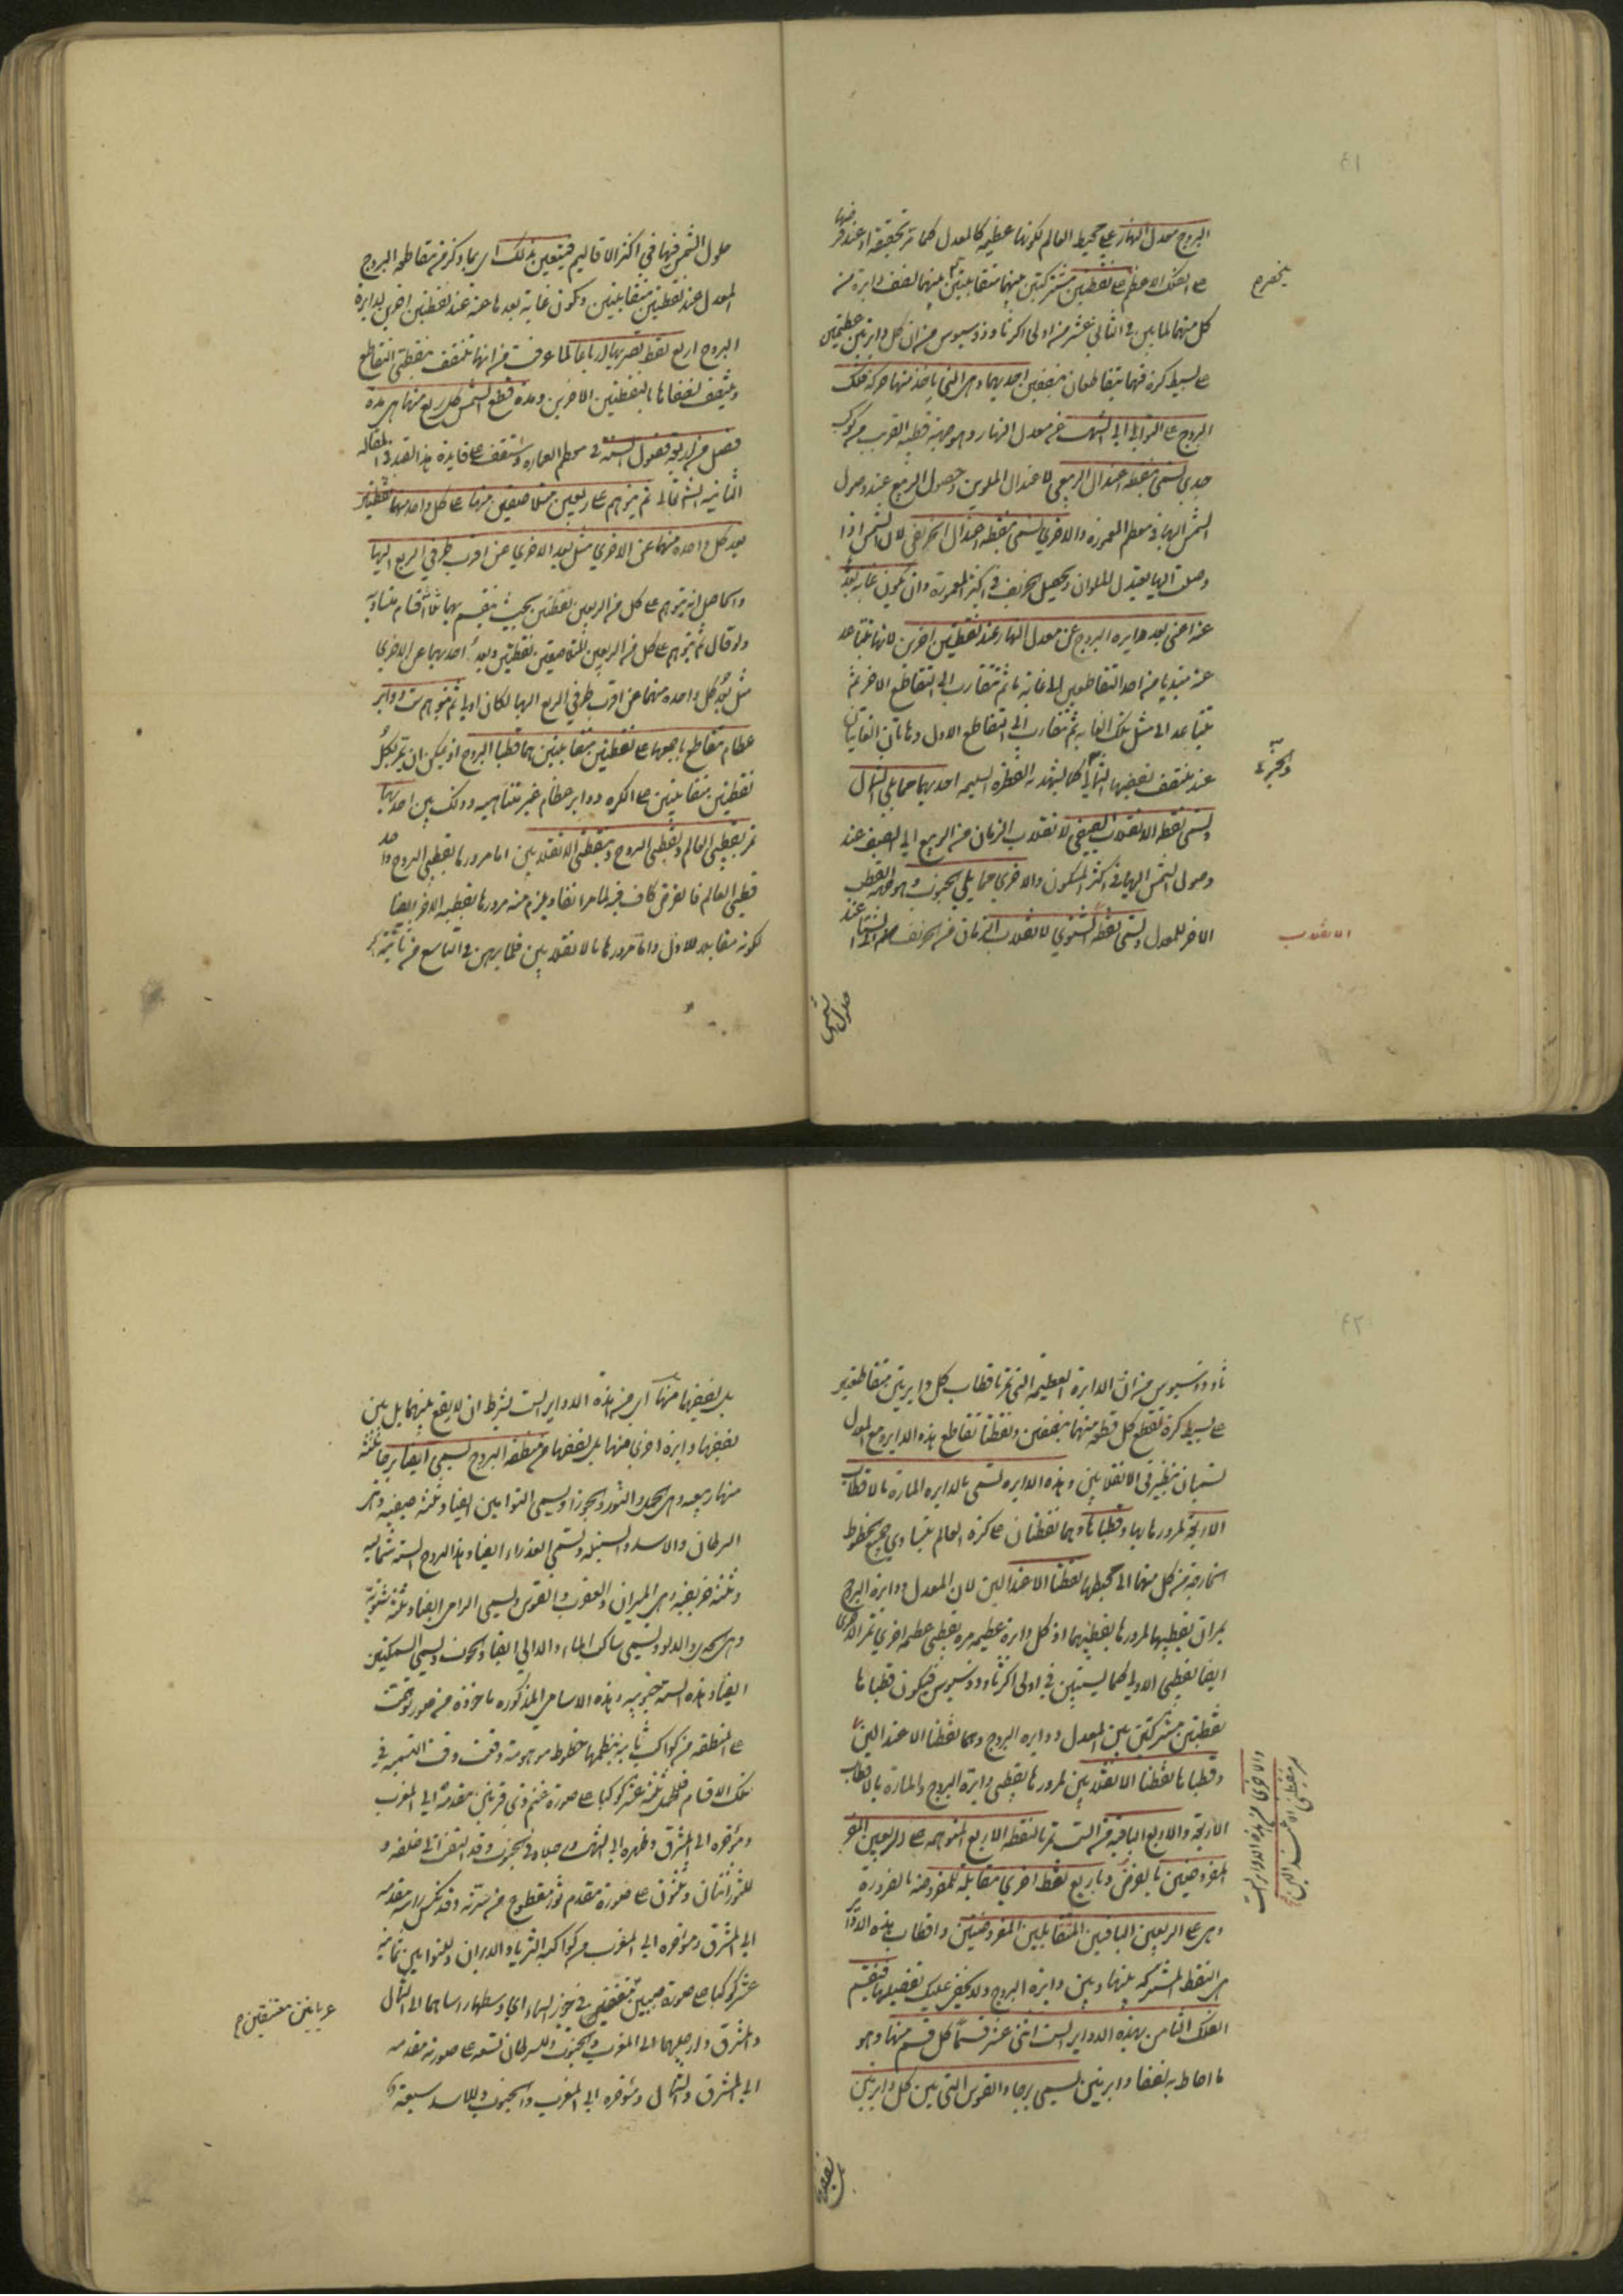 ٤١
البروج معدل النهار على محيط العالم لكونها عظيمة كالمعدل كما مر تحقيقه او عند فرضها
على الفلك الاعظم على نقطتين مشتركتين بينهما متقابلتين بينهما نصف دايرة من
كل منهما لما بين في الثاني عشر من اولى اكر ثاوذوسيوس من ان كل دايرتين عظيمتين
على بسيط كرة فهما يتقاطعان بنصفين احديهما وهى التى ياخذ منها حركة فلك
البروج على التوالي الى الشمال عن معدل النهار وهو جهة قطبه القريب من كوكب
جدى تسمى نقطة اعتدال الربيعي لاعتدال الملوين وحصول الربيع عند وصول
الشمس اليها في معظم المعمورة والاخرى تسمى نقطة اعتدال الخريفى لان الشمس اذا
وصلت اليها يعتدل الملوان ويحصل الخريف في اكثر المعمورة وان يكون غاية بعده
عنه اعنى بعد دايرة البروج عن معدل النهار عند نقطتين اخرين لانها تتباعد
عنه مبتدية من احد التقاطعين الى غاية ما ثم تتقارب الى التقاطع الاخر ثم
تتباعد الى مثل تلك الغاية ثم تتقارب الى التقاطع الاول وهاتان الغايتان
عند منتصف نصفيها التمالى كما يشهد به الفطرة السليمة احديهما مما يلي الشمال
وتسمى نقطة الانقلاب الصيفي لانقلاب الزمان من الربيع الى الصيف عند
وصول الشمس اليها في اكثر المسكون والاخرى مما يلي الجنوب وهو جهة القطب
الاخر للمعدل وتسمى نقطة الشتوي لانقلاب الزمان من الخريف الى الشتاء عند
الانقلاب
حلول الشمس
حلول الشمس فيها في اكثر الاقاليم فيتعين بذلك اى بما ذكر من تقاطع البروج
المعدل عند نقطتين متقابلتين وكون غاية بعدها عنه عند نقطتين اخرين لدايرة
البروج اربع نقط تصير بها ارباعا لما عرفت من انها تنتصف بنقطتي التقاطع
ويتنصف نصفاها بالنقطتين الاخرين ومدة قطع الشمس كل ربع منها هى مدة
فصل من اربعة فصول السنة في معظم العمارة وستقف على فايدة هذا القيد في المقالة
الثانية ان شاء الله تعالى ثم يتوهم على ربعين متلاصقين منها على كل واحد منهما نقطتين
بعد كل واحدة منهما عن الاخرى مثل بعد الاخرى عن اقرب طرفي الربع اليها
والحاصل انه يتوهم على كل من الربعين نقطتين بحيث ينقسم بهما ثلثة اقسام متساوية
ولو قال ثم يتوهم على كل من الربعين المتلاصقين نقطتين وبعد احديهما عن الاخرى
مثل بعد كل واحدة منهما عن اقرب طرفي الربع اليها لكان اولى ثم يتوهم ست دواير
عظام تتقاطع باجمعها على نقطتين متقابلتين هما قطبا البروج اذ يمكن ان تمر بكل
نقطتين متقابلتين على الكرة دواير عظام غير متناهية وذلك بين احديها
تمر بقطبي العالم وقطبي البروج وبنقطتي الانقلابين اما مرورها بقطبي البروج واحد
قطبي العالم فالفرض كاف فيه لما مر انفا ويلزم منه مرورها بقطبيه الاخر ايضا
لكونه مقابلا للاول واما مرورها بالانقلابين فلما برهن في التاسع من ثانية اكر
٤٢
ثاوذوسيوس من ان الدايرة العظيمة التى تمر باقطاب كل دايرتين متقاطعتين
على بسيط كرة تقطع كل قطعة منهما بنصفين ونقطتا تقاطع هذه الدايرة مع المعدل
تسميان بنظيرتى الانقلابين وهذه الدايرة تسمى بالدايرة المارة بالاقطاب
الاربعة لمرورها بها وقطباها وهما نقطتان على كرة العالم يتساوى جميع الخطوط
الخارجة من كل منهما الى محيطها نقطتا الاعتدالين لان المعدل ودايرة البروج
يمران بقطبيها لمرورها بقطبيهما اذ كل دايرة عظيمة مرت بقطبى عظيمة اخرى تمر الاخرى
ايضا بقطبي الاولى كما يستبين في اولى اكر ثاوذوسيوس فيكون قطباها
نقطتين مشتركتين بين المعدل ودايرة البروج وهما نقطتا الاعتدالين
وقطباها نقطتا الانقلابين لمرورها بقطبي دايرة البروج والمارة بالاقطاب
الاربعة والاربع الباقية من الست تمر بالنقط الاربع المتوهمة على الربعين
المفروضين بالفرض وباربع نقط اخرى مقابلة للمفروضة بالضرورة
وهى على الربعين الباقيين المتقابلين المفروضين واقطاب هذه الدواير
هى النقط المشتركة بينها وبين دايرة البروج ولا يخفى عليك تفصيلها فينقسم
الفلك الثامن بهذه الدواير الست اثنى عشر قسما كل قسم منها وهو
ما احاط به نصفا دايرتين يسمى برجا والقوس التى بين كل دايرتين
والاخرى من هذه الدواير الست
تمر بنقطتى الاعتدالين
بل نصفيها منها اى من هذه الدواير الست بشرط ان لا يقع بينهما بل بين
نصفيها دايرة اخرى منها بل نصفها من منطقة البروج تسمى ايضا برجا ثلثة
منها ربيعية وهى الحمل والثور والجوزا ويسمى التوامين ايضا وثلثة صيفية وهى
السرطان والاسد والسنبلة وتسمى العذراء ايضا وهذه البروج الستة شمالية
وثلثة خريفية وهى الميزان والعقرب والقوس ويسمى الرامى ايضا وثلثة شتوية
وهى الجدى والدلو ويسمى ساكب الماء والدالي ايضا والحوت ويسمى السمكتين
ايضا وهذه الستة جنوبية وهذه الاسامى المذكورة ماخوذة من صور توهمت
على المنطقة من كواكب ثابتة ينظمها خطوط موهومة وقعت وقت التسمية في
تلك الاقسام فللحمل ثلثة عشر كوكبا على صورة غنم ذى قرنين مقدمه الى المغرب
ومؤخره الى المشرق وظهره الى الشمال ورجلاه في الجنوب وقد التفت الى خلفه و
للثور اثنان وثلثون على صورة مقدم ثور مقطوع من سرته وقد نكس راسه مقدمه
الى المشرق ومؤخره الى المغرب من كواكبه الثريا والدبران وللتوامين ثمانية
عشر كوكبا على صورة صبيين في جوز السماء اى وسطها راساهما الى الشمال
والمشرق وارجلهما الى المغرب والجنوب وللسرطان تسعة على صورته مقدمه
الى المشرق والشمال ومؤخره الى المغرب والجنوب وللاسد سبعة و
عريانين معتنقين